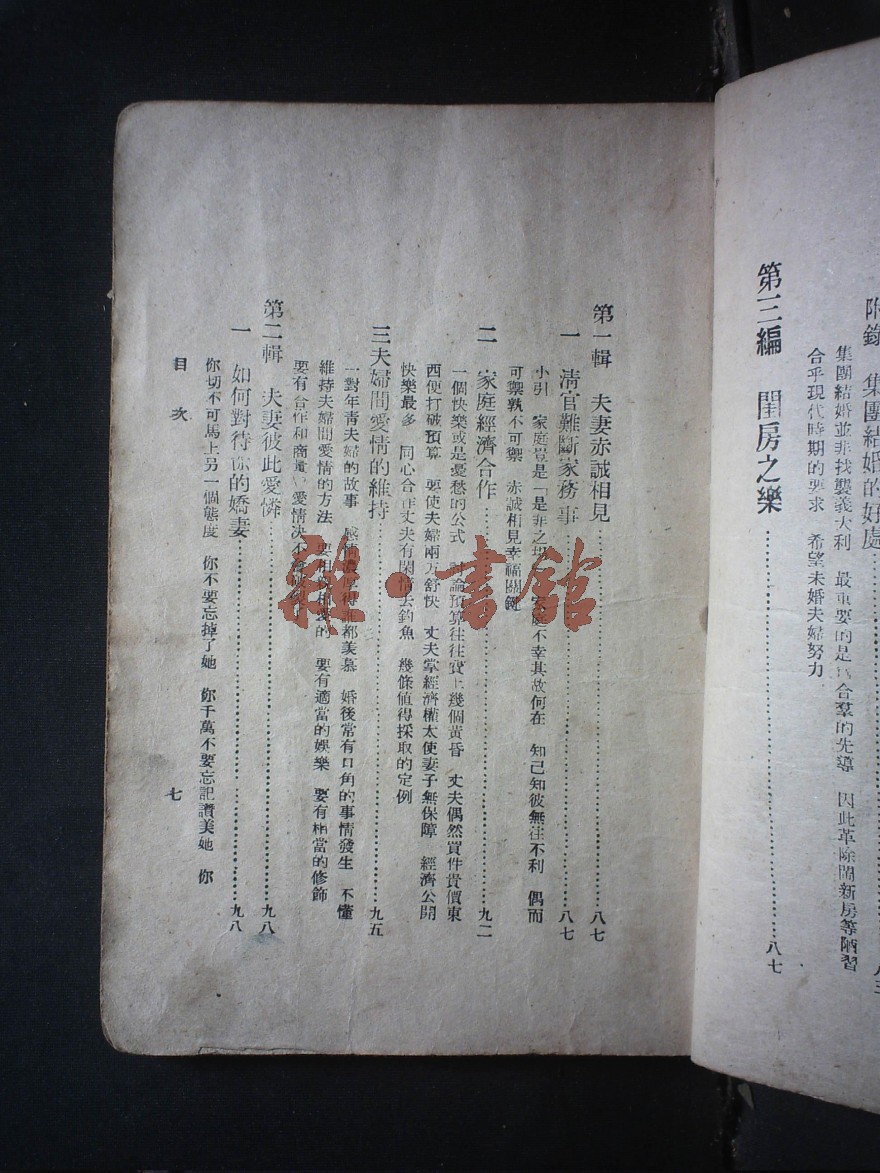 附錄 集團結婚的好處……八三
集團結婚並非抄襲義大利 最重要的是 合羣的先導 因此革除鬧新房等陋習
合乎現代時期的要求 希望未婚夫婦努力
第三編 閨房之樂……八七
第一輯 夫妻赤誠相見……八七
一 清官難斷家務事……八七
小引 家庭豈是「是非之 家庭不幸其故何在 知己知彼無往不利 偶而
可禦孰不可禦 赤誠相見幸福關鍵
二 家庭經濟合作……九二
一個快樂或是憂愁的公式 討論預算往往費上幾個黃昏 丈夫偶然買件貴價東
西便打破預算 要使夫婦兩方舒快 丈夫掌經濟權太使妻子無保障 經濟公開
快樂最多 同心合作丈夫有閑情去釣魚 幾條值得採取的定例
三 夫婦間愛情的維持……九五
一對年青夫婦的故事 感情濃厚得誰都羡慕 婚後常有口角的事情發生 不懂
維持夫婦間愛情的方法 要相 的 要有適當的娛樂 要有相當的修飾
要有合作和商量 愛情決不
第二輯 夫妻彼此愛憐……九八
一 如何對待你的嬌妻……九八
你切不可馬上另一個態度 你不要忘掉了她 你千萬不要忘記讚美她 你
目次
七
雜·書館